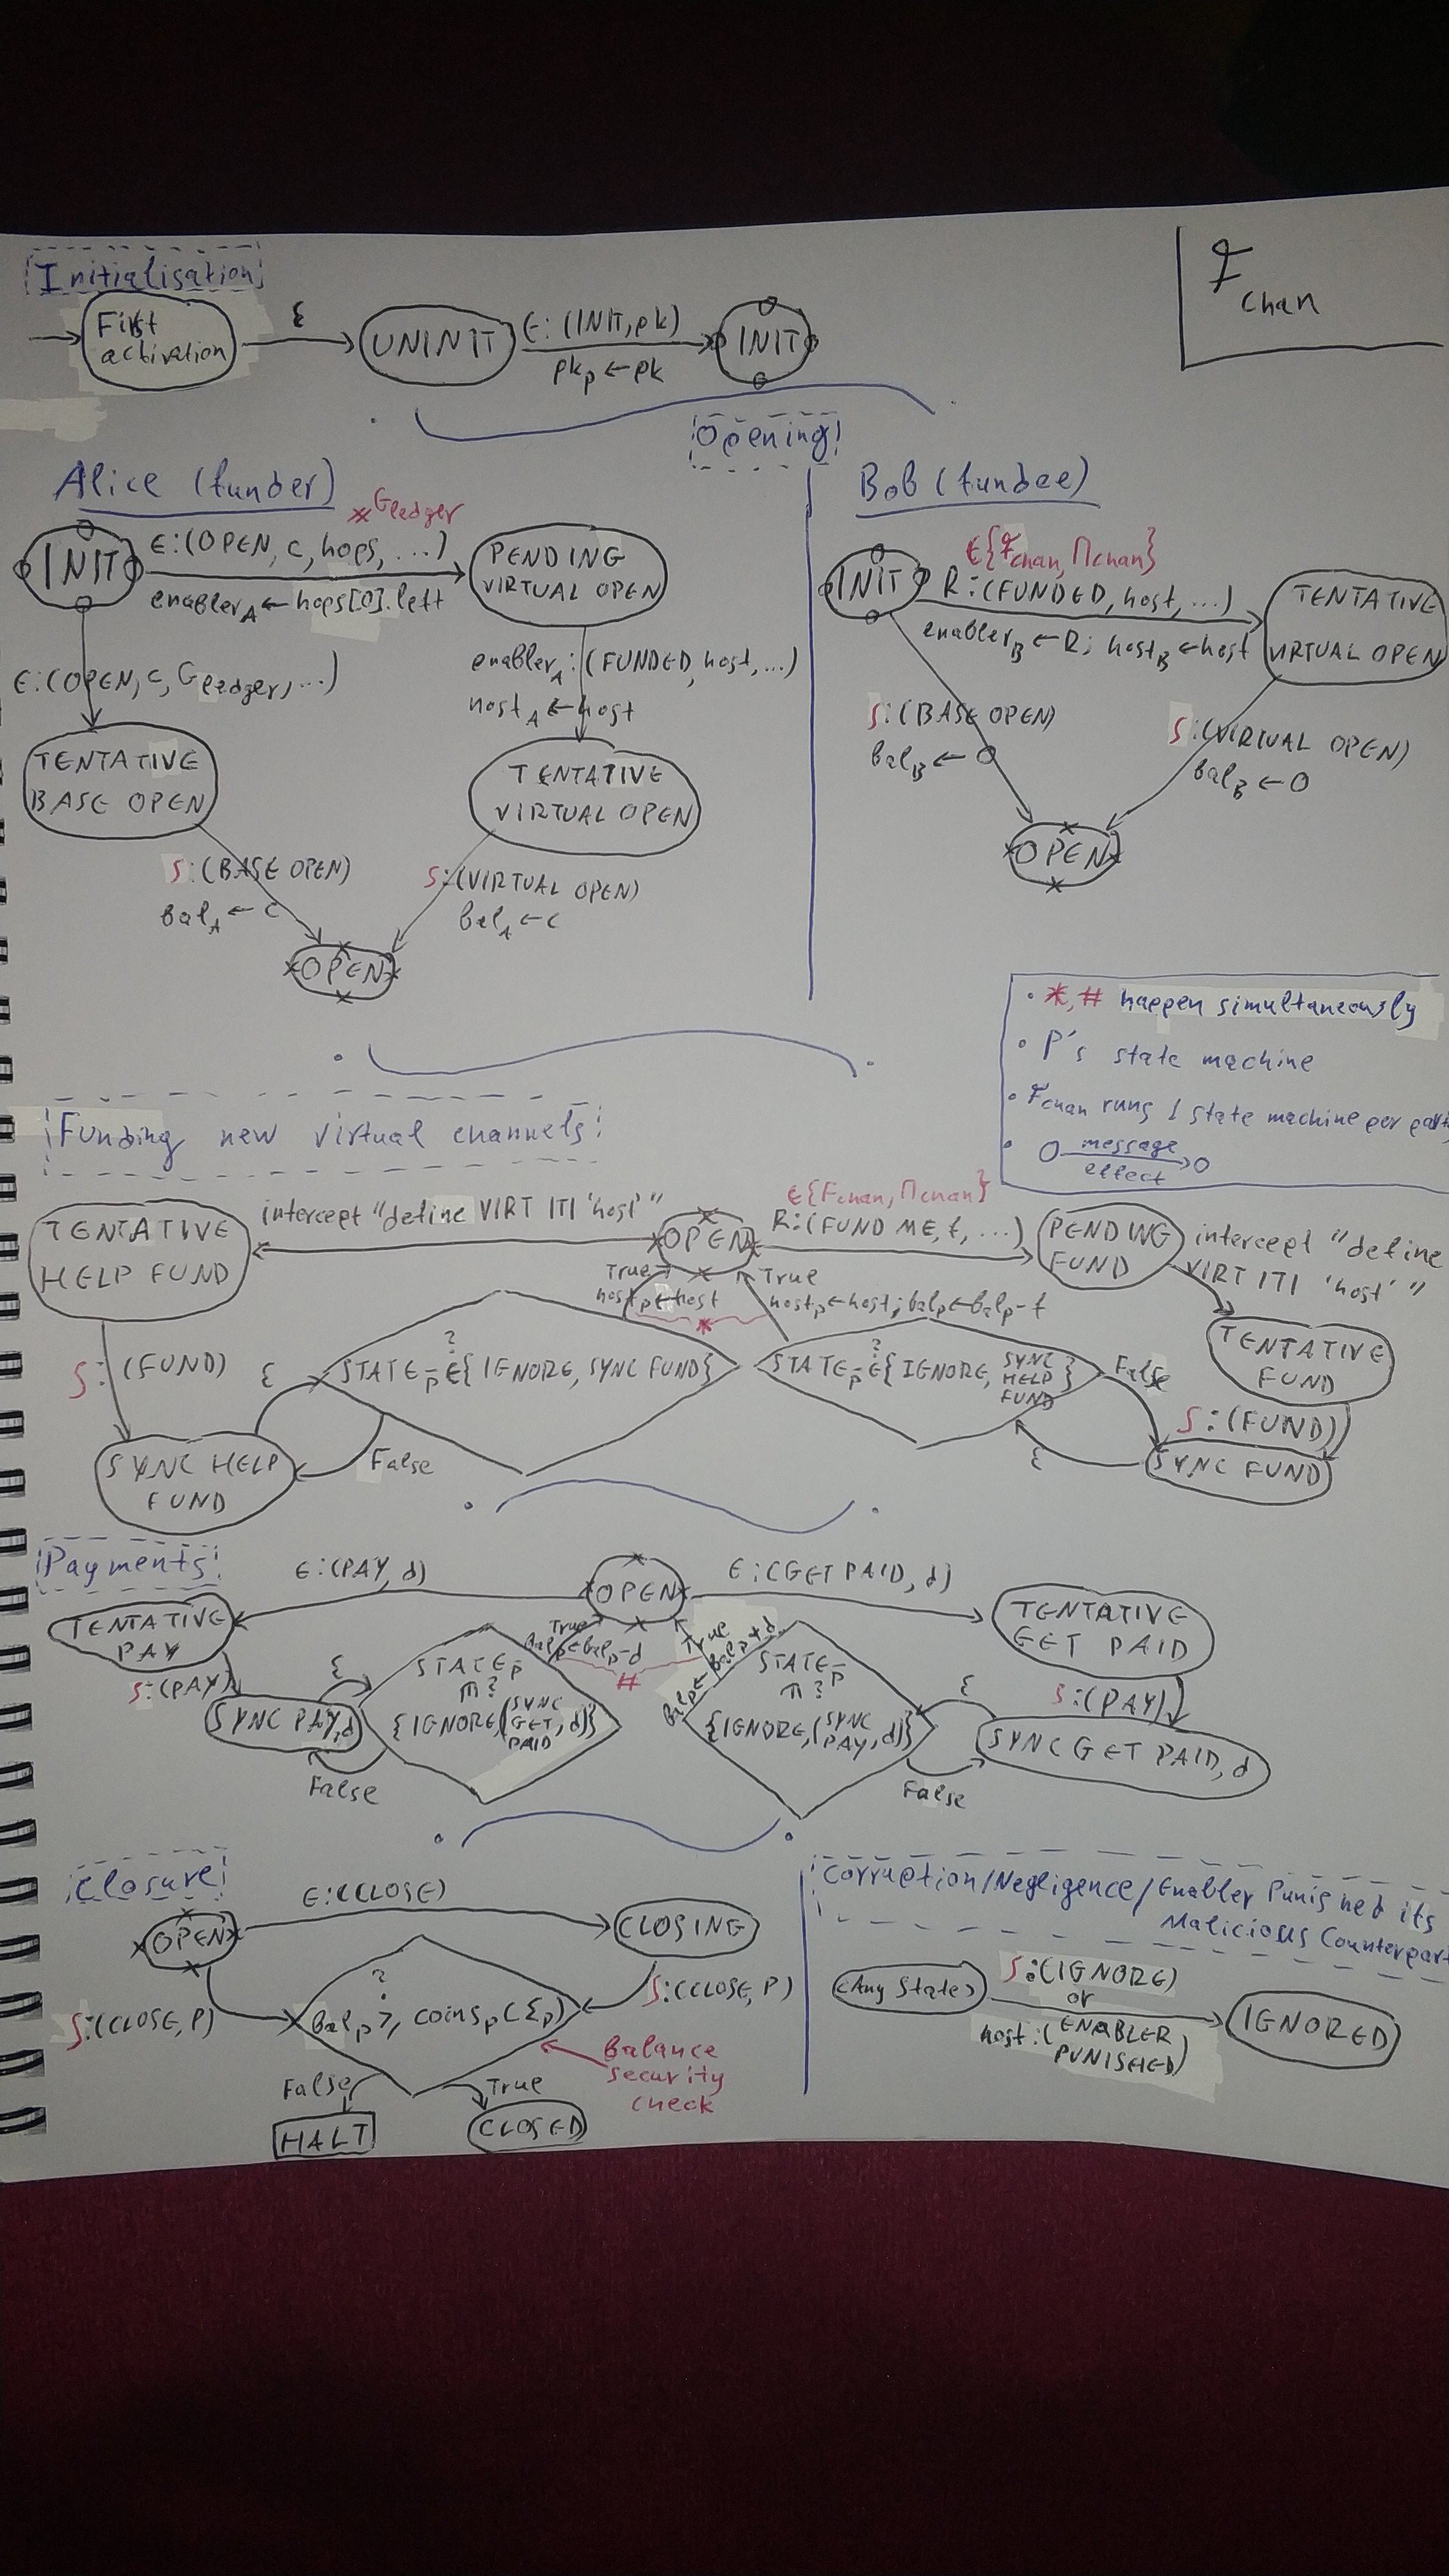 Initialisation
ℱ
chan
First
activation
ε
UNINIT
ε: (INIT, pk)
pk_P ← pk
INIT
Opening
Alice (funder)
Bob (fundee)
≠ G_ledger
INIT
ε: (OPEN, c, hops, ...)
enabler_A ← hops[0].left
PENDING
VIRTUAL OPEN
ε: (OPEN, c, G_ledger, ...)
enabler_A: (FUNDED, host, ...)
host_A ← host
TENTATIVE
BASE OPEN
TENTATIVE
VIRTUAL OPEN
S: (BASE OPEN)
bal_A ← c
S: (VIRTUAL OPEN)
bal_A ← c
OPEN
∈{ℱ_chan, Π_chan}
INIT
R: (FUNDED, host, ...)
enabler_B ← R; host_B ← host
TENTATIVE
VIRTUAL OPEN
S: (BASE OPEN)
bal_B ← 0
S: (VIRTUAL OPEN)
bal_B ← 0
OPEN
• *, # happen simultaneously
• P's state machine
• ℱ_chan runs 1 state machine per
• message
effect
Funding new virtual channels
TENTATIVE
HELP FUND
intercept "define VIRT ITI 'host'"
OPEN
∈{ℱ_chan, Π_chan}
R: (FUND ME, f, ...)
PENDING
FUND
intercept "define
VIRT ITI 'host'"
True
host_P ← host
True
host_P ← host; bal_P ← bal_P - f
*
TENTATIVE
FUND
S: (FUND)
ε
?
STATE_P̄ ∈ {IGNORE, SYNC FUND}
?
STATE_P̄ ∈ {IGNORE, SYNC
HELP
FUND}
False
S: (FUND)
SYNC HELP
FUND
False
ε
SYNC FUND
Payments
ε: (PAY, d)
OPEN
ε: (GET PAID, d)
TENTATIVE
PAY
TENTATIVE
GET PAID
True
bal_P ← bal_P - d
#
True
bal_P ← bal_P + d
S: (PAY)
SYNC PAY, d
ε
STATE_P̄
∈ ?
{IGNORE, (SYNC
GET
PAID, d)}
False
STATE_P̄
∈ ?
{IGNORE, (SYNC
PAY, d)}
ε
False
S: (PAY)
SYNC GET PAID, d
Closure
OPEN
ε: (CLOSE)
CLOSING
S: (CLOSE, P)
?
bal_P ≥ coins_P(Σ_P)
S: (CLOSE, P)
Balance
security
check
False
HALT
True
CLOSED
Corruption/Negligence/Enabler Punished its
Malicious Counterpart
<Any State>
S: (IGNORE)
or
host: (ENABLER
PUNISHED)
IGNORED